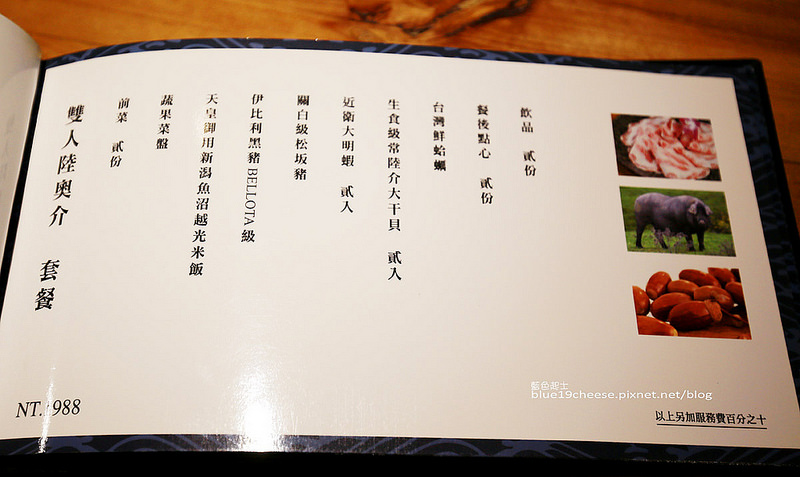 雙人陸奧介 套餐
前菜 貳份
蔬果菜盤
天皇御用新潟魚沼越光米飯
伊比利黑豬BELLOTA級
關白級松坂豬
近衛大明蝦 貳入
生食級常陸介大干貝 貳入
台灣鮮蛤蠣
餐後點心 貳份
飲品 貳份
NT.
以上另加服務費百分之十
藍色起士
blue19cheese.pixnet.net/blog